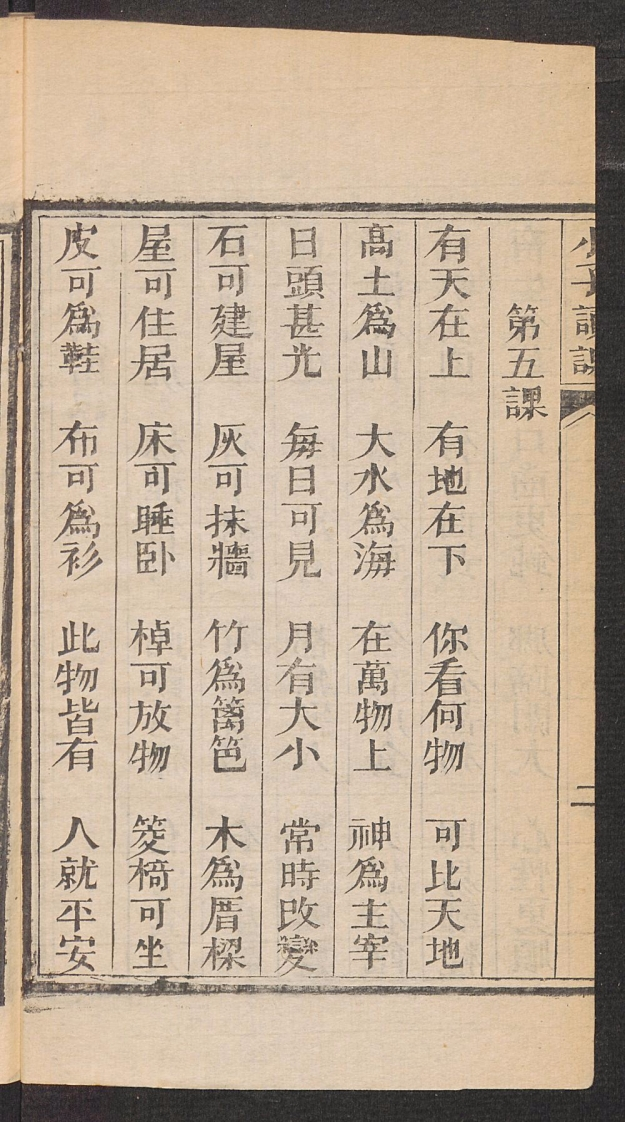 小子讀課
二
第五課
有天在上 有地在下 你看何物 可比天地
高土爲山 大水爲海 在萬物上 神爲主宰
日頭甚光 每日可見 月有大小 常時改變
石可建屋 灰可抹牆 竹爲籬笆 木爲厝樑
屋可住居 床可睡臥 棹可放物 筊椅可坐
皮可爲鞋 布可爲衫 此物皆有 人就平安